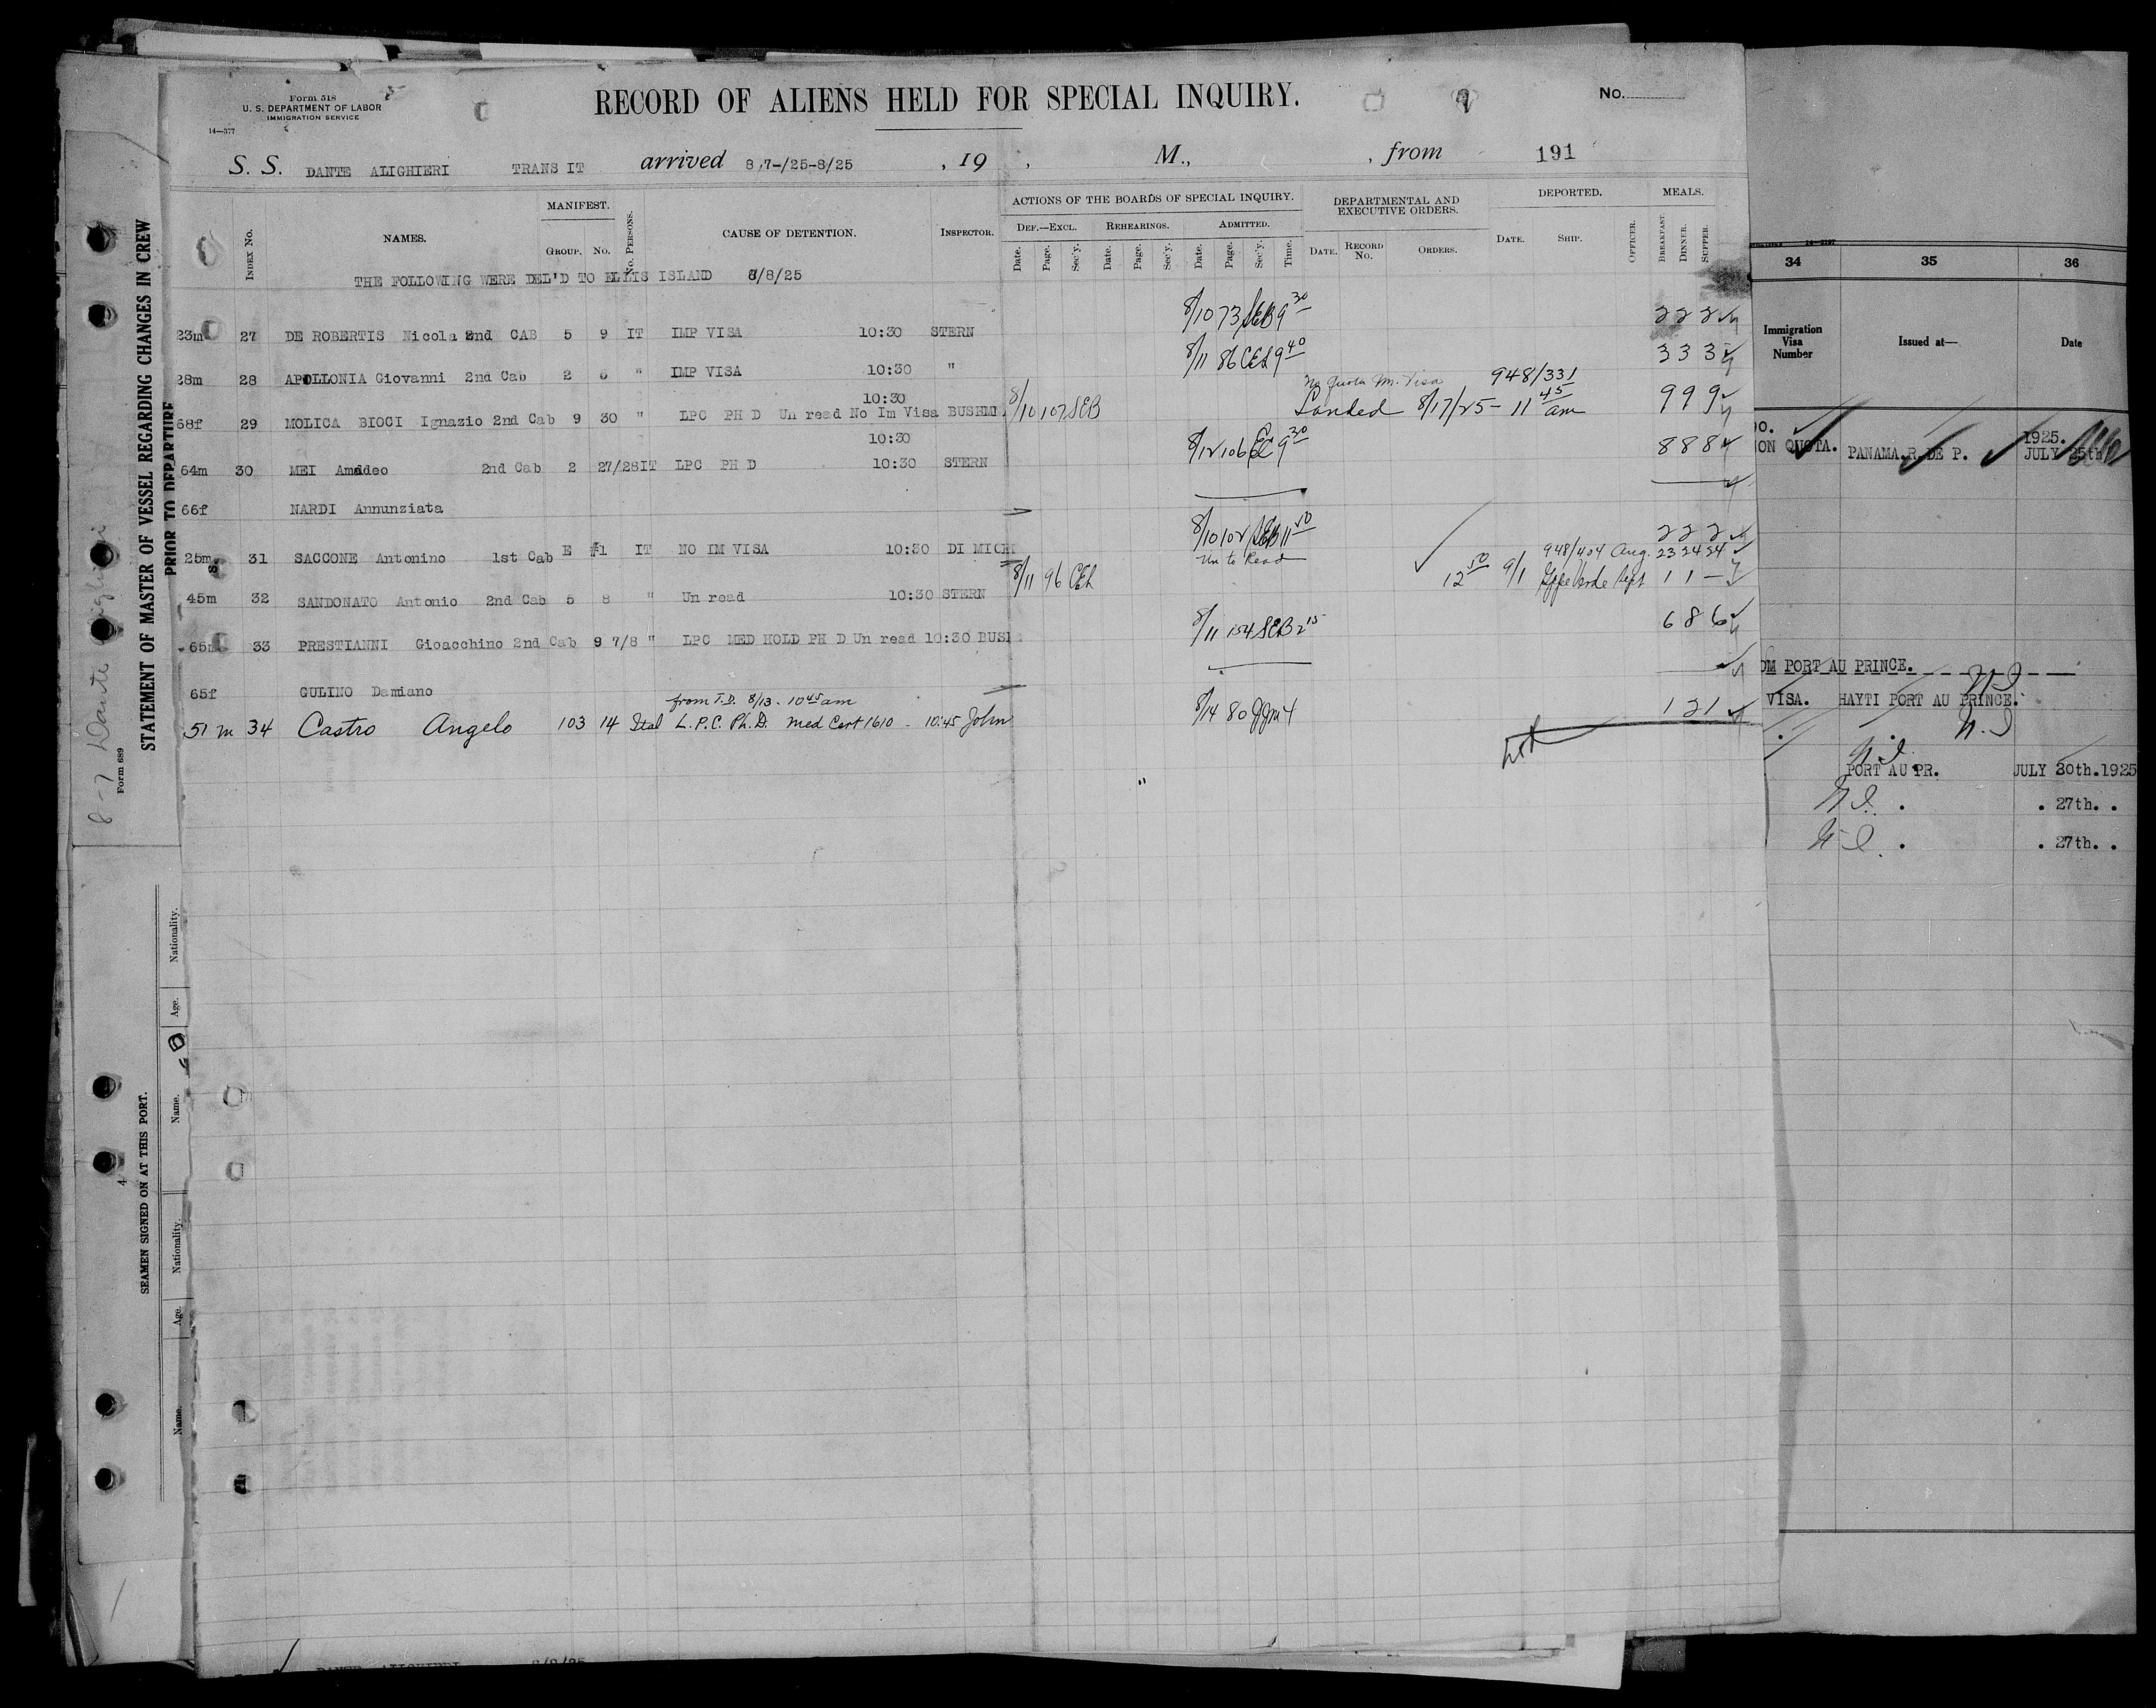 Form 518
U. S. DEPARTMENT OF LABOR
IMMIGRATION SERVICE
14—377
RECORD OF ALIENS HELD FOR SPECIAL INQUIRY.
No.
S. S. DANTE ALIGHIERI TRANSIT arrived 8,7-/25-8/25 , 19 , M., , from 191
INDEX No. NAMES. MANIFEST. GROUP. No. No. PERSONS. CAUSE OF DETENTION. INSPECTOR.
ACTIONS OF THE BOARDS OF SPECIAL INQUIRY. DEPARTMENTAL AND EXECUTIVE ORDERS. DEPORTED. MEALS.
DEF.—EXCL. REHEARINGS. ADMITTED.
Date. Page. Sec'y. Date. Page. Sec'y. Date. Page. Sec'y. Time. DATE. RECORD No. ORDERS. DATE. SHIP. OFFICER. BREAKFAST. DINNER. SUPPER.
THE FOLLOWING WERE DEL'D TO ELLIS ISLAND 8/8/25
23m 27 DE ROBERTIS Nicola 2nd CAB 5 9 IT IMP VISA 10:30 STERN 8/10 73 SEB 9 30 2 2 2
28m 28 APOLLONIA Giovanni 2nd Cab 2 6 " IMP VISA 10:30 " 8/11 86 CEL 9 40 3 3 3
10:30
No Quota Im. Visa 948/331
68f 29 MOLICA BIOCI Ignazio 2nd Cab 9 30 " LPC PH D Un read No Im Visa BUSHMI 8/10 107 SEB Landed 8/17/25 - 11 45 am 9 9 9
10:30
64m 30 MEI Amadeo 2nd Cab 2 27/28 IT LPC PH D 10:30 STERN 8/12 106 EC 9 30 8 8 8
66f NARDI Annunziata
25m 31 SACCONE Antonino 1st Cab E #1 IT NO IM VISA 10:30 DI MICH 8/10 102 SEB 11 50 2 2 2
Un to Read 948/404 Aug. 23 24 24
45m 32 SANDONATO Antonio 2nd Cab 5 8 " Un read 10:30 STERN 8/11 96 CEL 12 50 9/1 Sept 1 1 –
65m 33 PRESTIANNI Gioacchino 2nd Cab 9 7/8 " LPC MED HOLD PH D Un read 10:30 BUSH 8/11 154 SEB 2 15 6 8 6
65f GULINO Damiano
from T.D. 8/13. 10 45 am
51 m 34 Castro Angelo 103 14 Ital L.P.C. Ph.D. Med Cert 1610 - 10:45 John 8/14 80 JJM 4 1 2 1
"
STATEMENT OF MASTER OF VESSEL REGARDING CHANGES IN CREW
PRIOR TO DEPARTURE
8-7 Dante Alighieri
Form 689
SEAMEN SIGNED ON AT THIS PORT.
4
Name. Age. Nationality. Name. Age. Nationality.
14—2197
34 35 36
Immigration Visa Number Issued at— Date
NO.
NON QUOTA. PANAMA.R.DE P. 1925. JULY 25th
OM PORT AU PRINCE.
VISA. HAYTI PORT AU PRINCE.
N.I
PORT AU PR. JULY 30th.1925
. . 27th. .
. . 27th. .
DANTE ALIGHIERI 8/8/25